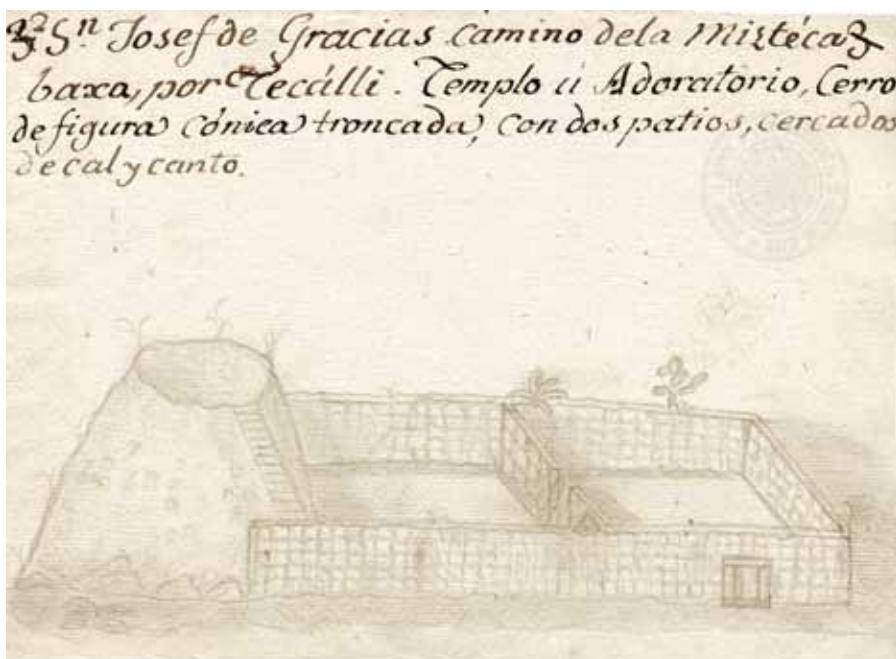 Sⁿ. Josef de Gracias camino dela Mistéca
baxa, por Tecálli. Templo ú Adoratorio, Cerro
de figura cónica troncada, con dos patios, cercados
de cal y canto.